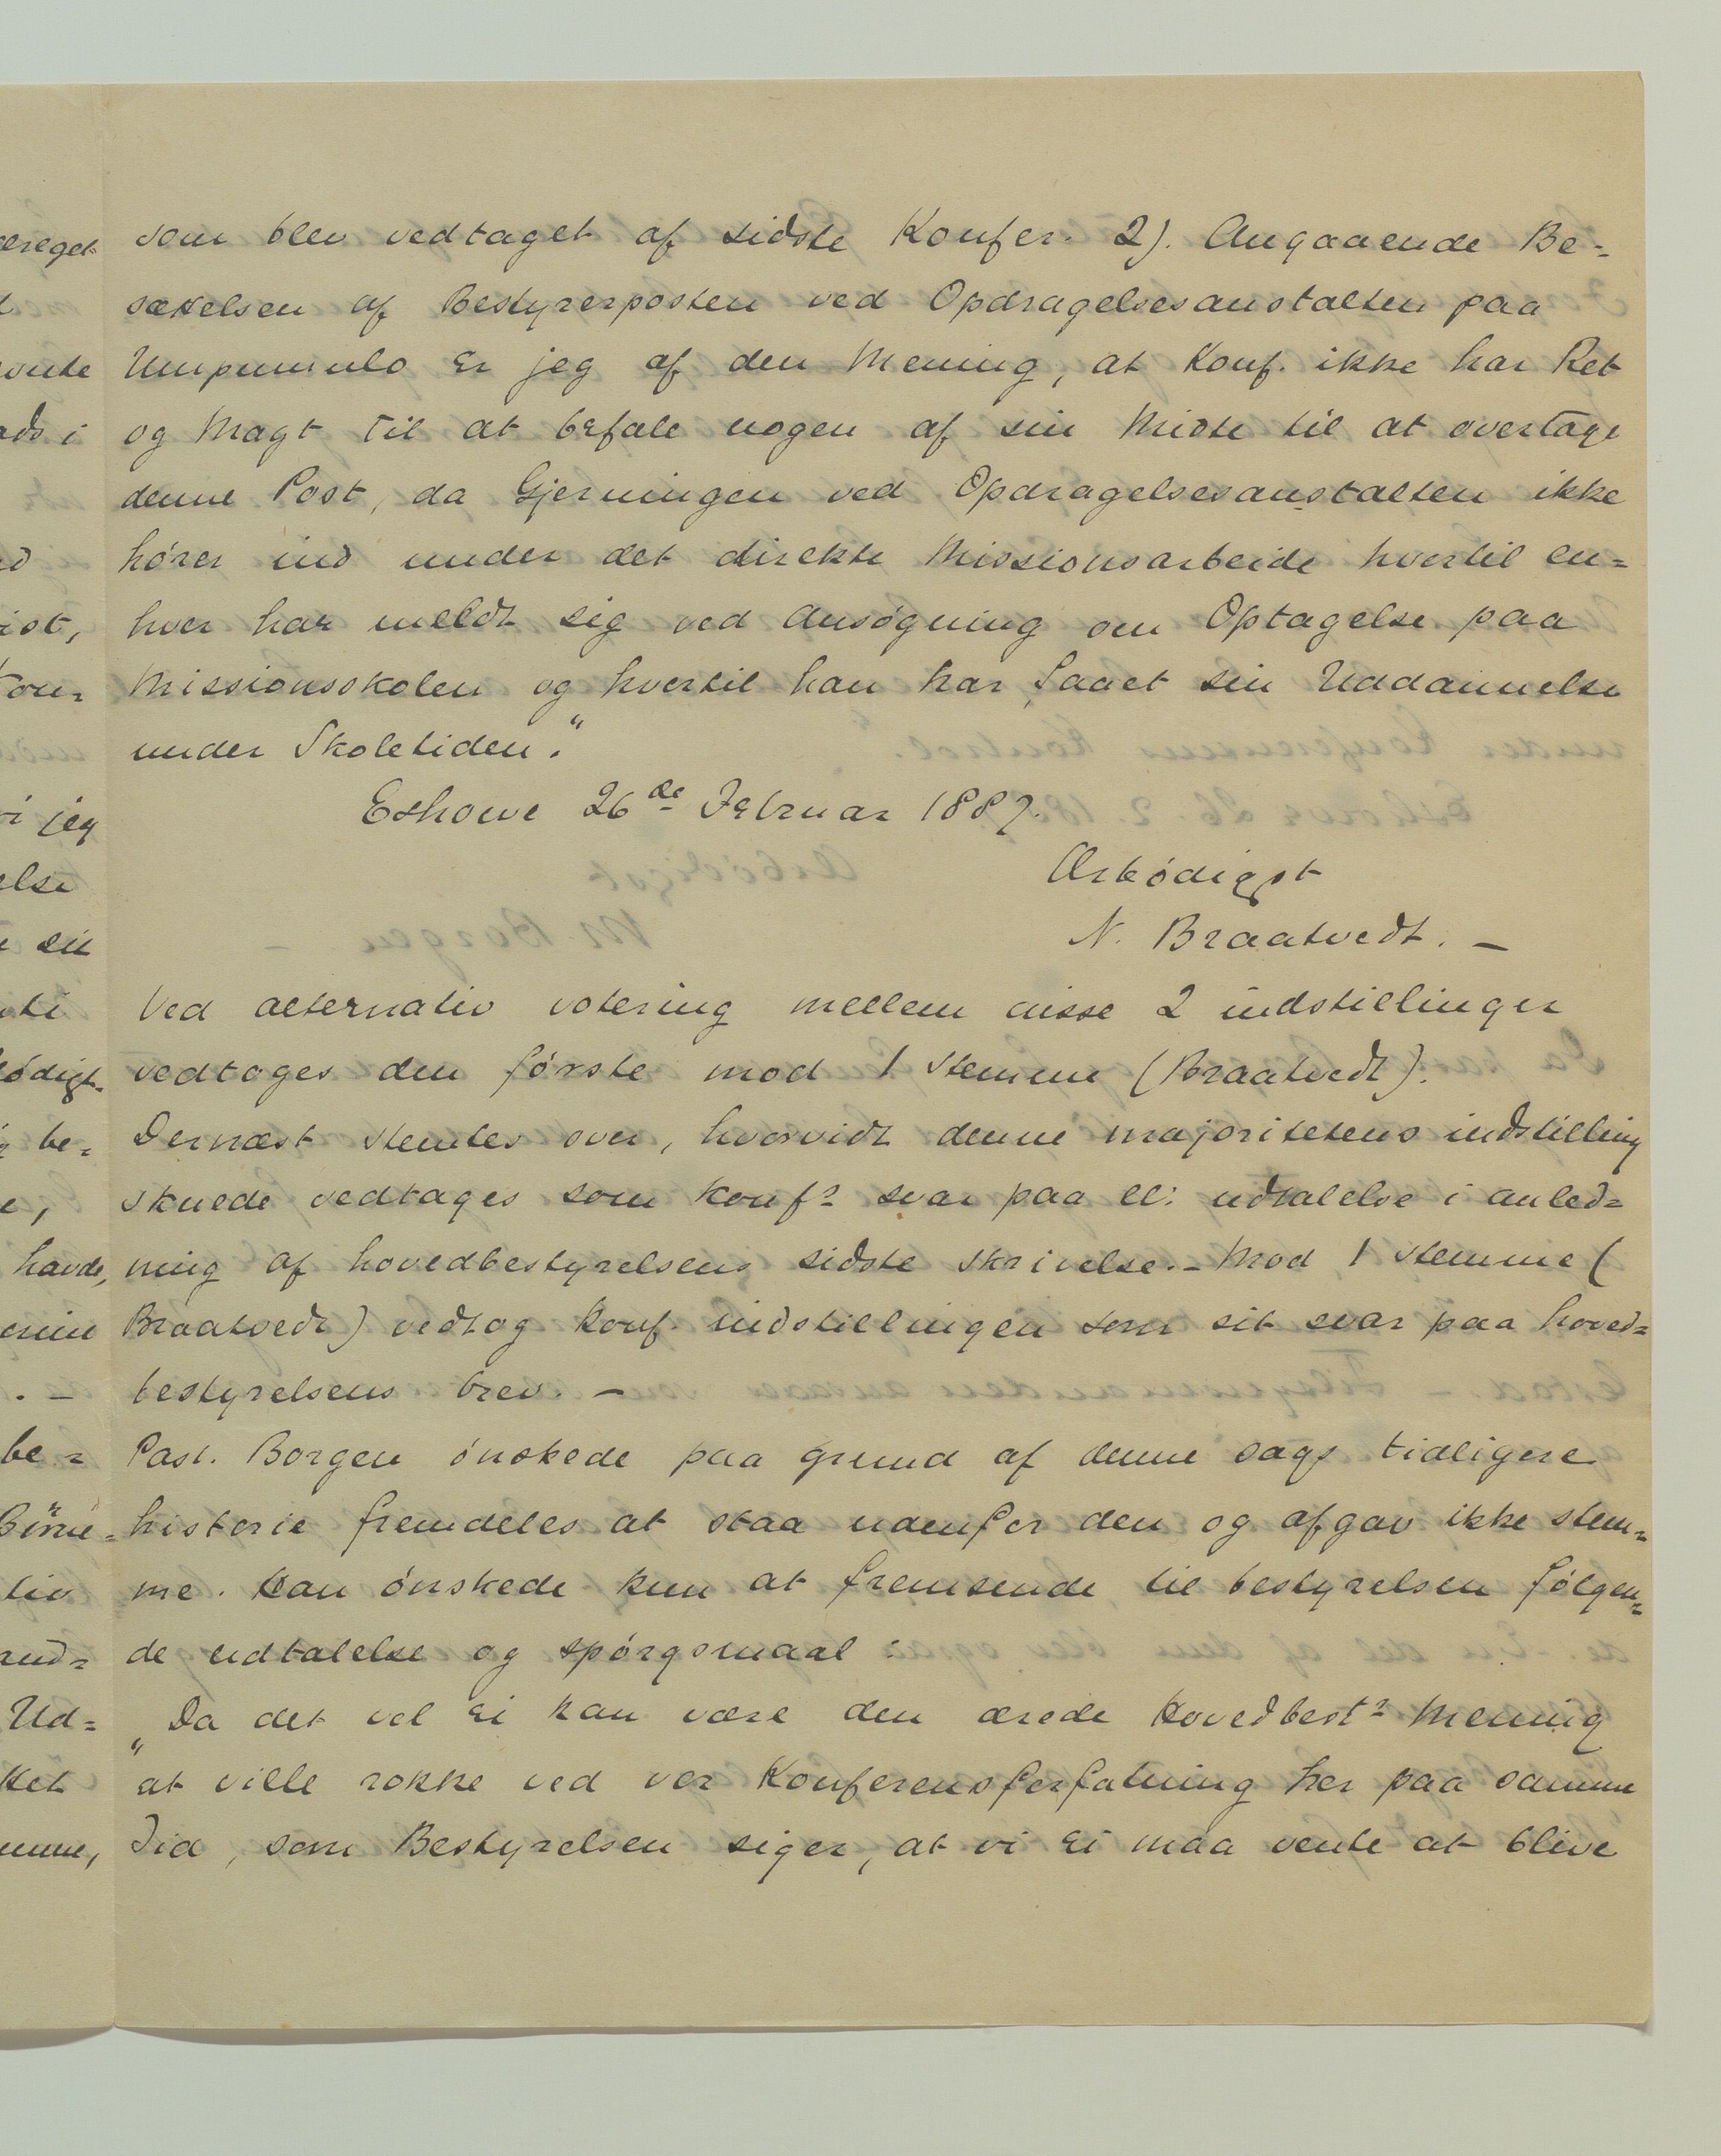 som blev vedtaget af sidste Konfer. 2). Angaaende Be-
sættelsen af Bestyrerposten ved Opdragelsesanstalten paa
Umpumulo er jeg af den Mening, at Konf. ikke har Ret
og Magt til at befale nogen af sin Midte til at overtage
denne Post, da Gjerningen ved Opdragelsesanstalten ikke
hører ind under det direkte Missionsarbeide hvertil en-
hver har meldt sig ved Ansøgning om Optagelse paa
Missionsskolen og hvertil han har faaet sin Uddannelse
under Skoletiden."
Eshowe 26de Februar 1887.
Ærbødigst
N. Braatvedt. —
Ved alternativ votering mellem disse 2 indstillinger
vedtages den første mod 1 stemme (Braatvedt).
Dernæst stemtes over, hvorvidt denne majoritetens indstilling
skulde vedtages som konfs svar paa el: udtalelse i anled-
ning af hovedbestyrelsens sidste skrivelse. - Mod 1 stemme (
Braatvedt) vedtog konf. indstillingen som sit svar paa hoved-
bestyrelsens brev. —
Past. Borgen ønskede paa grund af denne sags tidligere
historie fremdeles at staa udenfor den og afgav ikke stem-
me. Han ønskede kun at fremsende til bestyrelsen følgen-
de udtalelse og spørgsmaal:
„Da det vel ei kan være den ærede Hovedbests Mening
at ville rokke ved vor Konferensforfatning her paa samme
Tid, som Bestyrelsen siger, at vi ei maa vente at blive